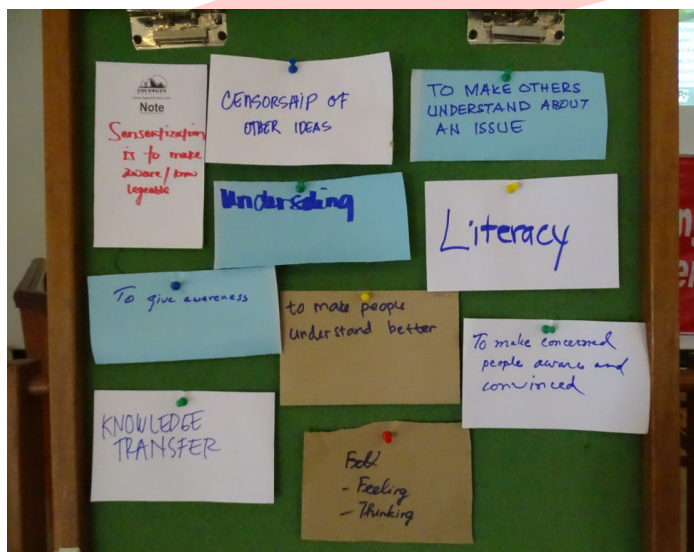 Note
Sensentization
is to make
aware/know
legeable
CENSORSHIP OF
OTHER IDEAS
TO MAKE OTHERS
UNDERSTAND ABOUT
AN ISSUE
Literacy
To give awareness
to make people
understand better
To make concerned
people aware and
convinced
KNOWLEDGE
TRANSFER
- Feeling
- Thinking